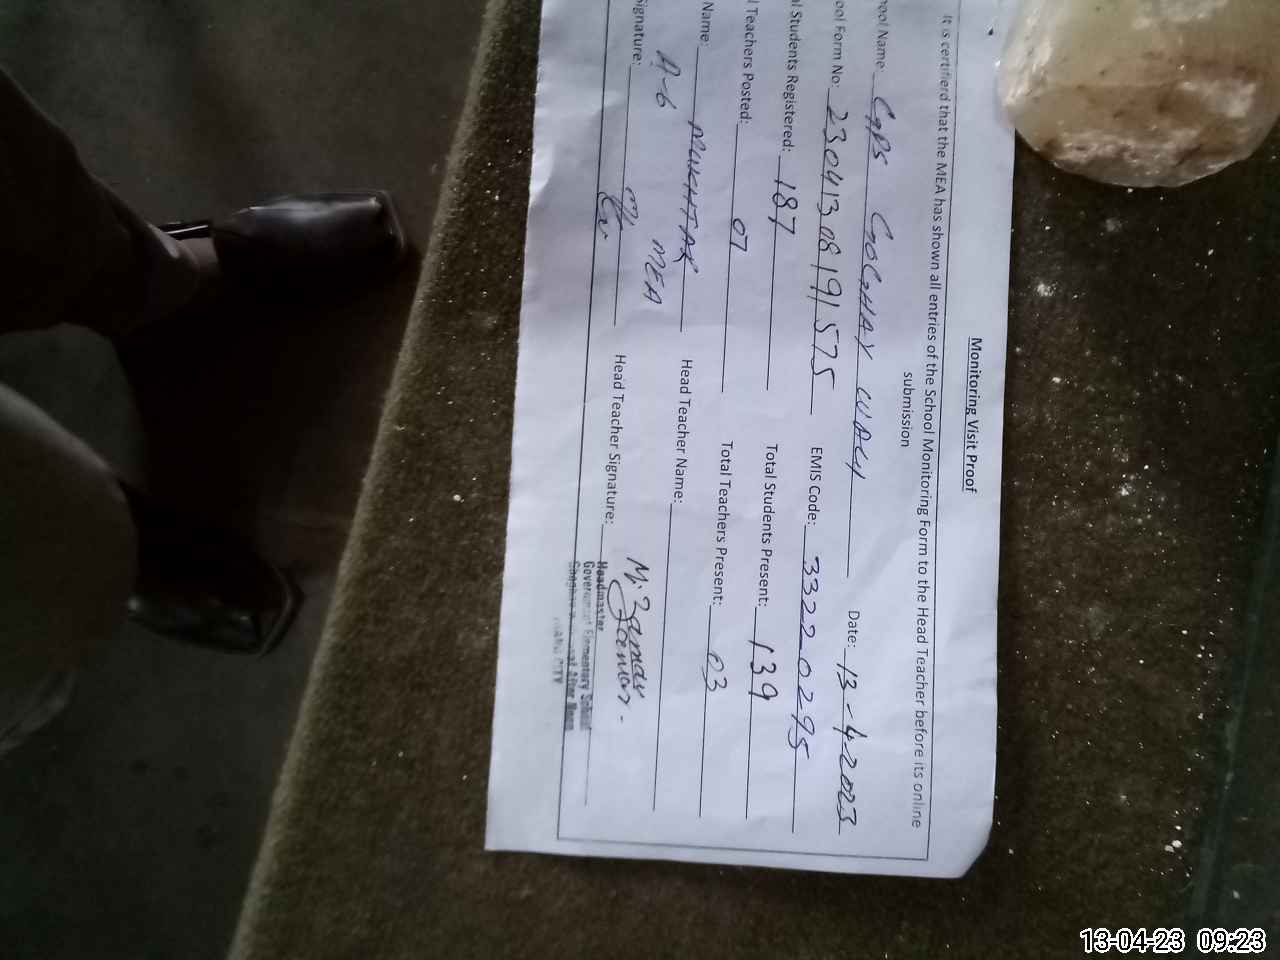 Monitoring Visit Proof
It is certifierd that the MEA has shown all entries of the School Monitoring Form to the Head Teacher before its online
submission
ool Name: GPS GOGHAY WALI Date: 13-4-2023
ool Form No: 23041308191575 EMIS Code: 33220295
l Students Registered: 187 Total Students Present: 139
l Teachers Posted: 07 Total Teachers Present: 03
Name: MUKHTAR Head Teacher Name:
A-6 MEA
ignature: Head Teacher Signature:
Headmaster
Government Elementary School
13-04-23 09:23